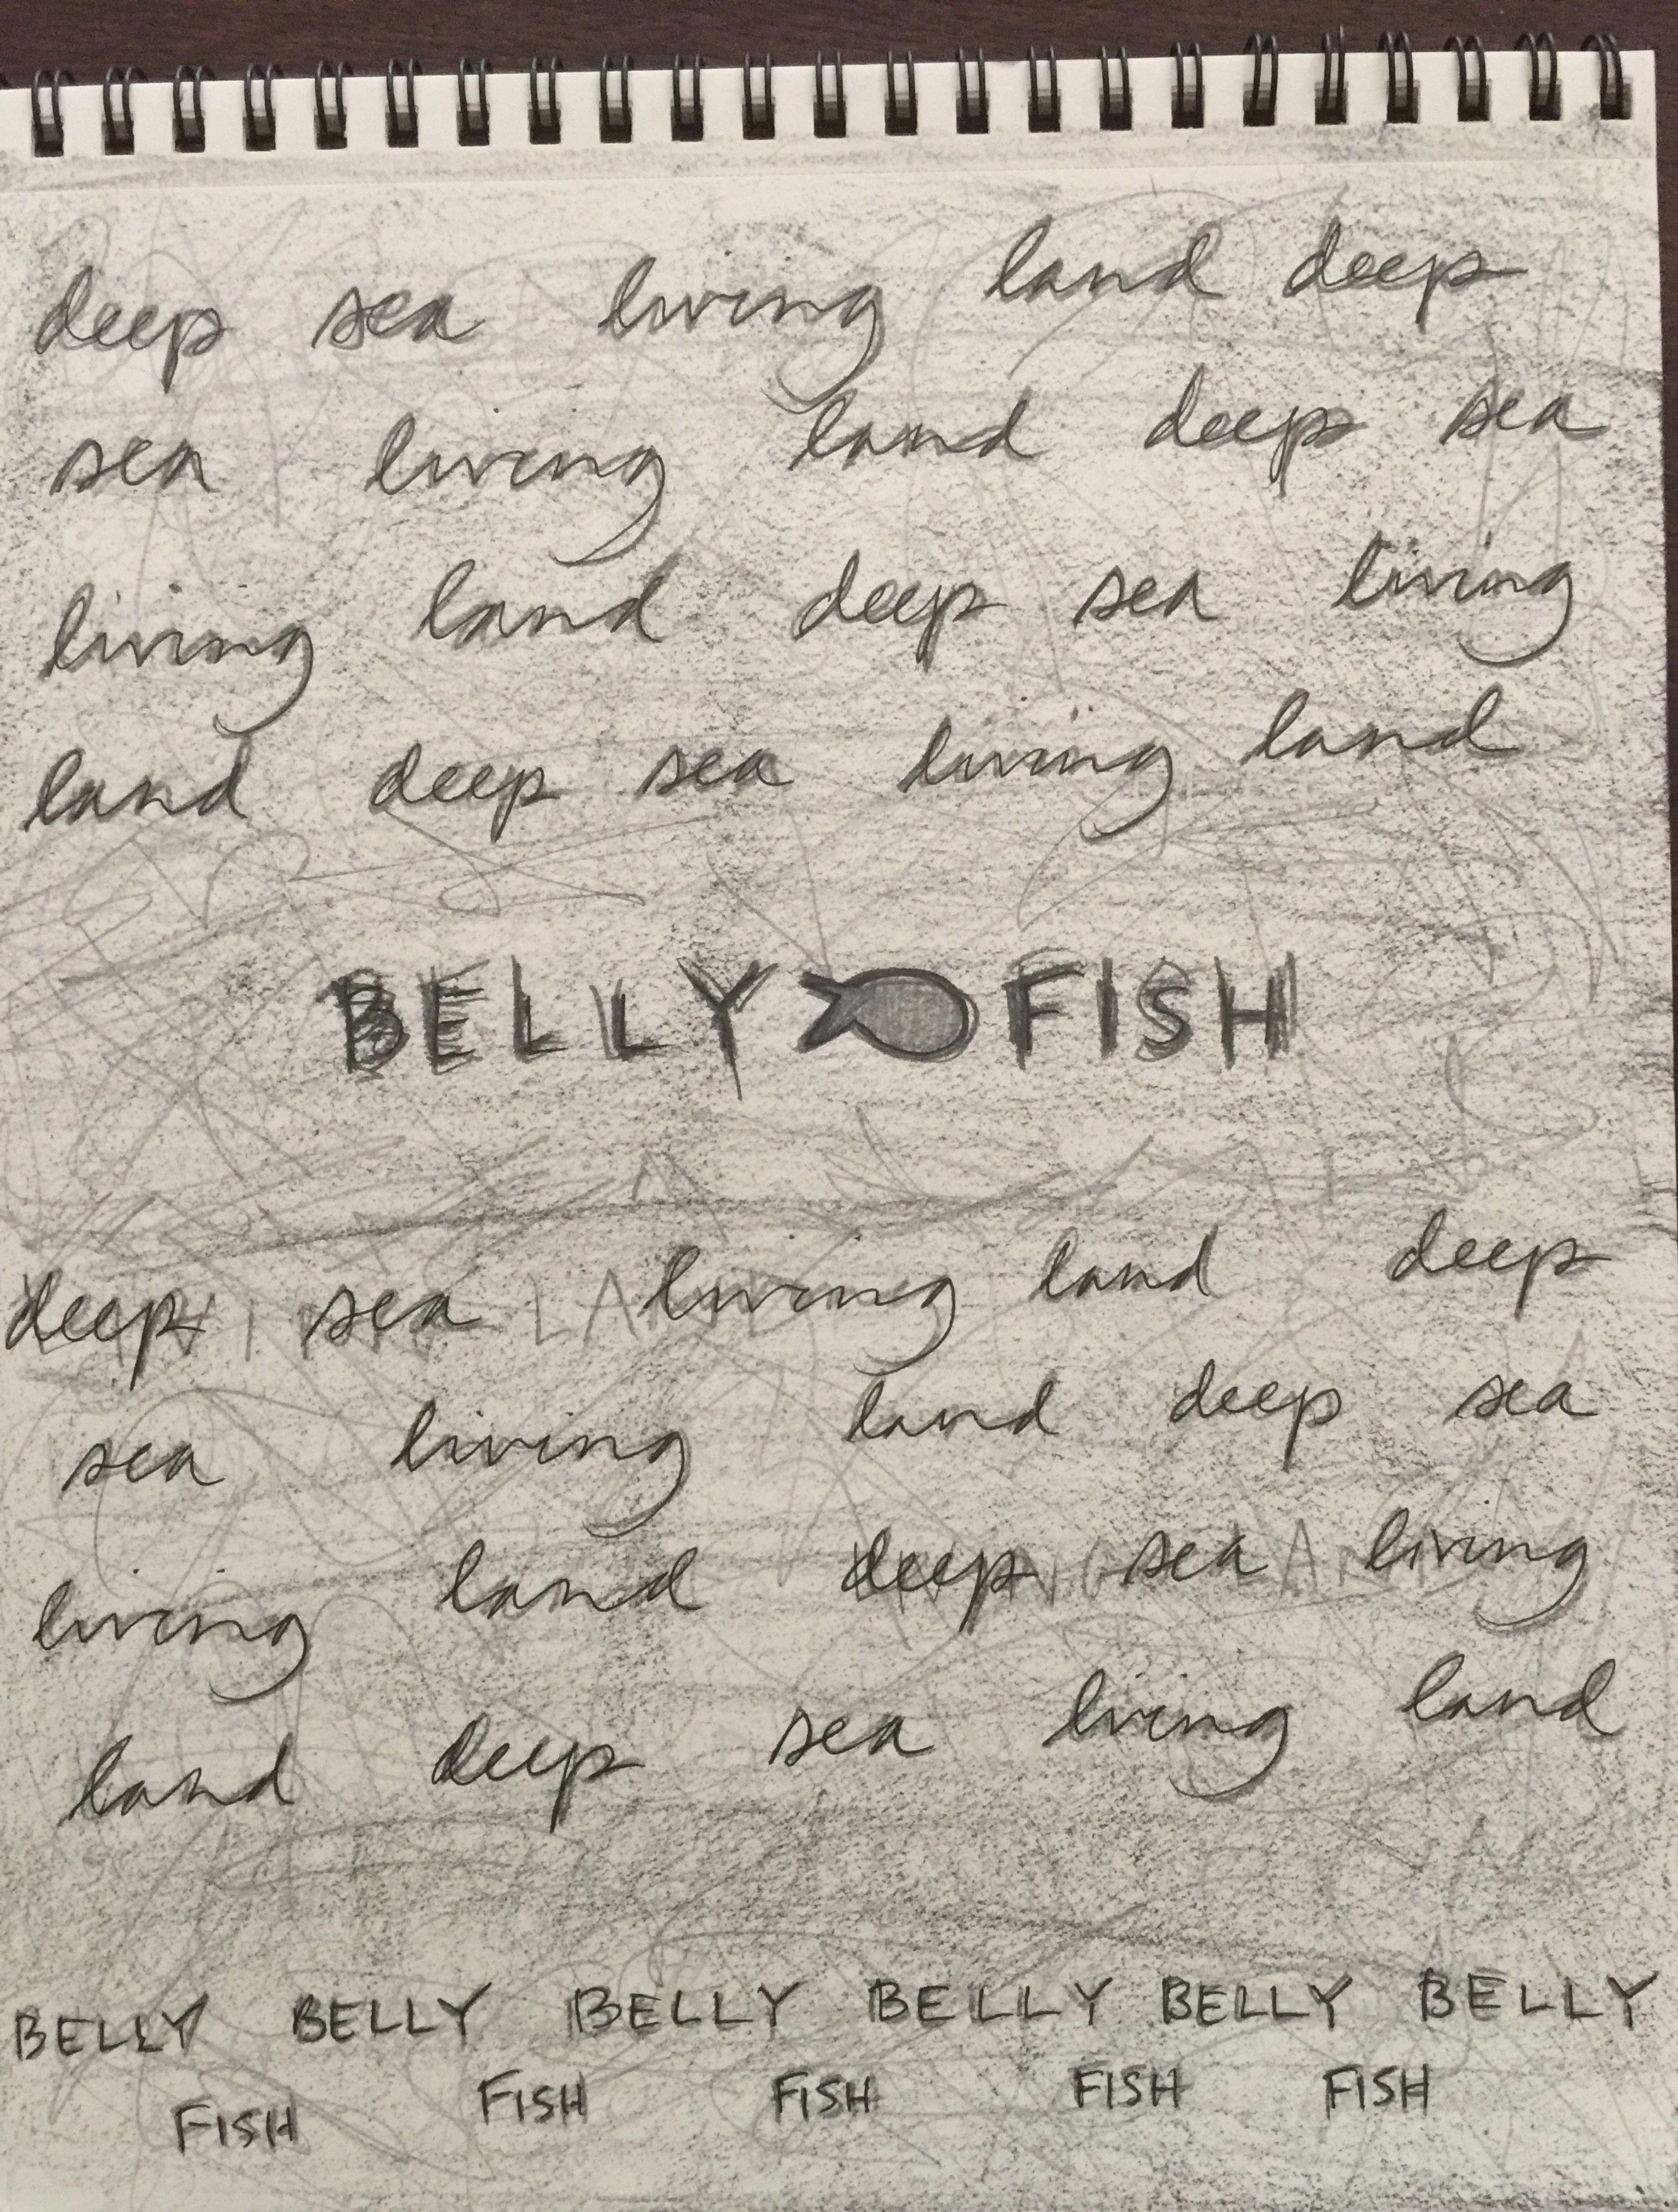 deep sea living land deep
sea living land deep sea
living land deep sea living
land deep sea living land
BELLY FISH
deep sea living land deep
sea living land deep sea
living land deep sea living
land deep sea living land
BELLY BELLY BELLY BELLY BELLY BELLY
FISH FISH FISH FISH FISH